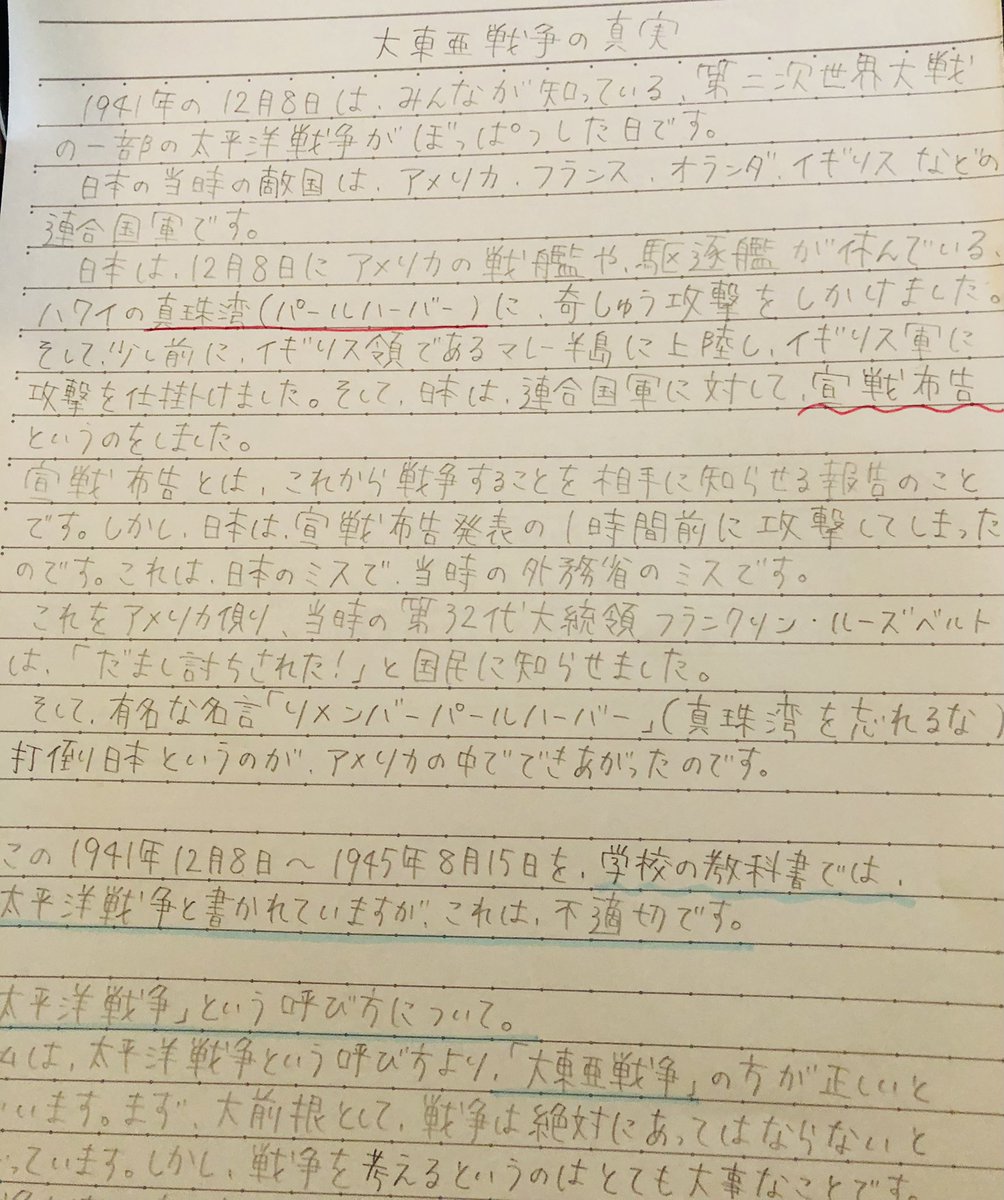 大東亜戦争の真実
1941年の12月8日は、みんなが知っている、第二次世界大戦
の一部の太平洋戦争がぼっぱつした日です。
日本の当時の敵国は、アメリカ、フランス、オランダ、イギリスなどの
連合国軍です。
日本は、12月8日にアメリカの戦艦や、駆逐艦が休んでいる、
ハワイの真珠湾(パールハーバー)に、奇しゅう攻撃をしかけました。
そして、少し前に、イギリス領であるマレー半島に上陸し、イギリス軍に
攻撃を仕掛けました。そして、日本は、連合国軍に対して、宣戦布告
というのをしました。
宣戦布告とは、これから戦争することを相手に知らせる報告のこと
です。しかし、日本は、宣戦布告発表の1時間前に攻撃してしまった
のです。これは、日本のミスで、当時の外務省のミスです。
これをアメリカ側、当時の第32代大統領フランクリン・ルーズベルト
は、「だまし討ちされた!」と国民に知らせました。
そして、有名な名言「リメンバーパールハーバー」(真珠湾を忘れるな)
打倒日本というのが、アメリカの中でできあがったのです。
この1941年12月8日~1945年8月15日を、学校の教科書では、
太平洋戦争と書かれていますが、これは、不適切です。
太平洋戦争」という呼び方について。
は、太平洋戦争という呼び方より、「大東亜戦争」の方が正しいと
います。まず、大前根として、戦争は絶対にあってはならないと
っています。しかし、戦争を考えるというのはとても大事なことです